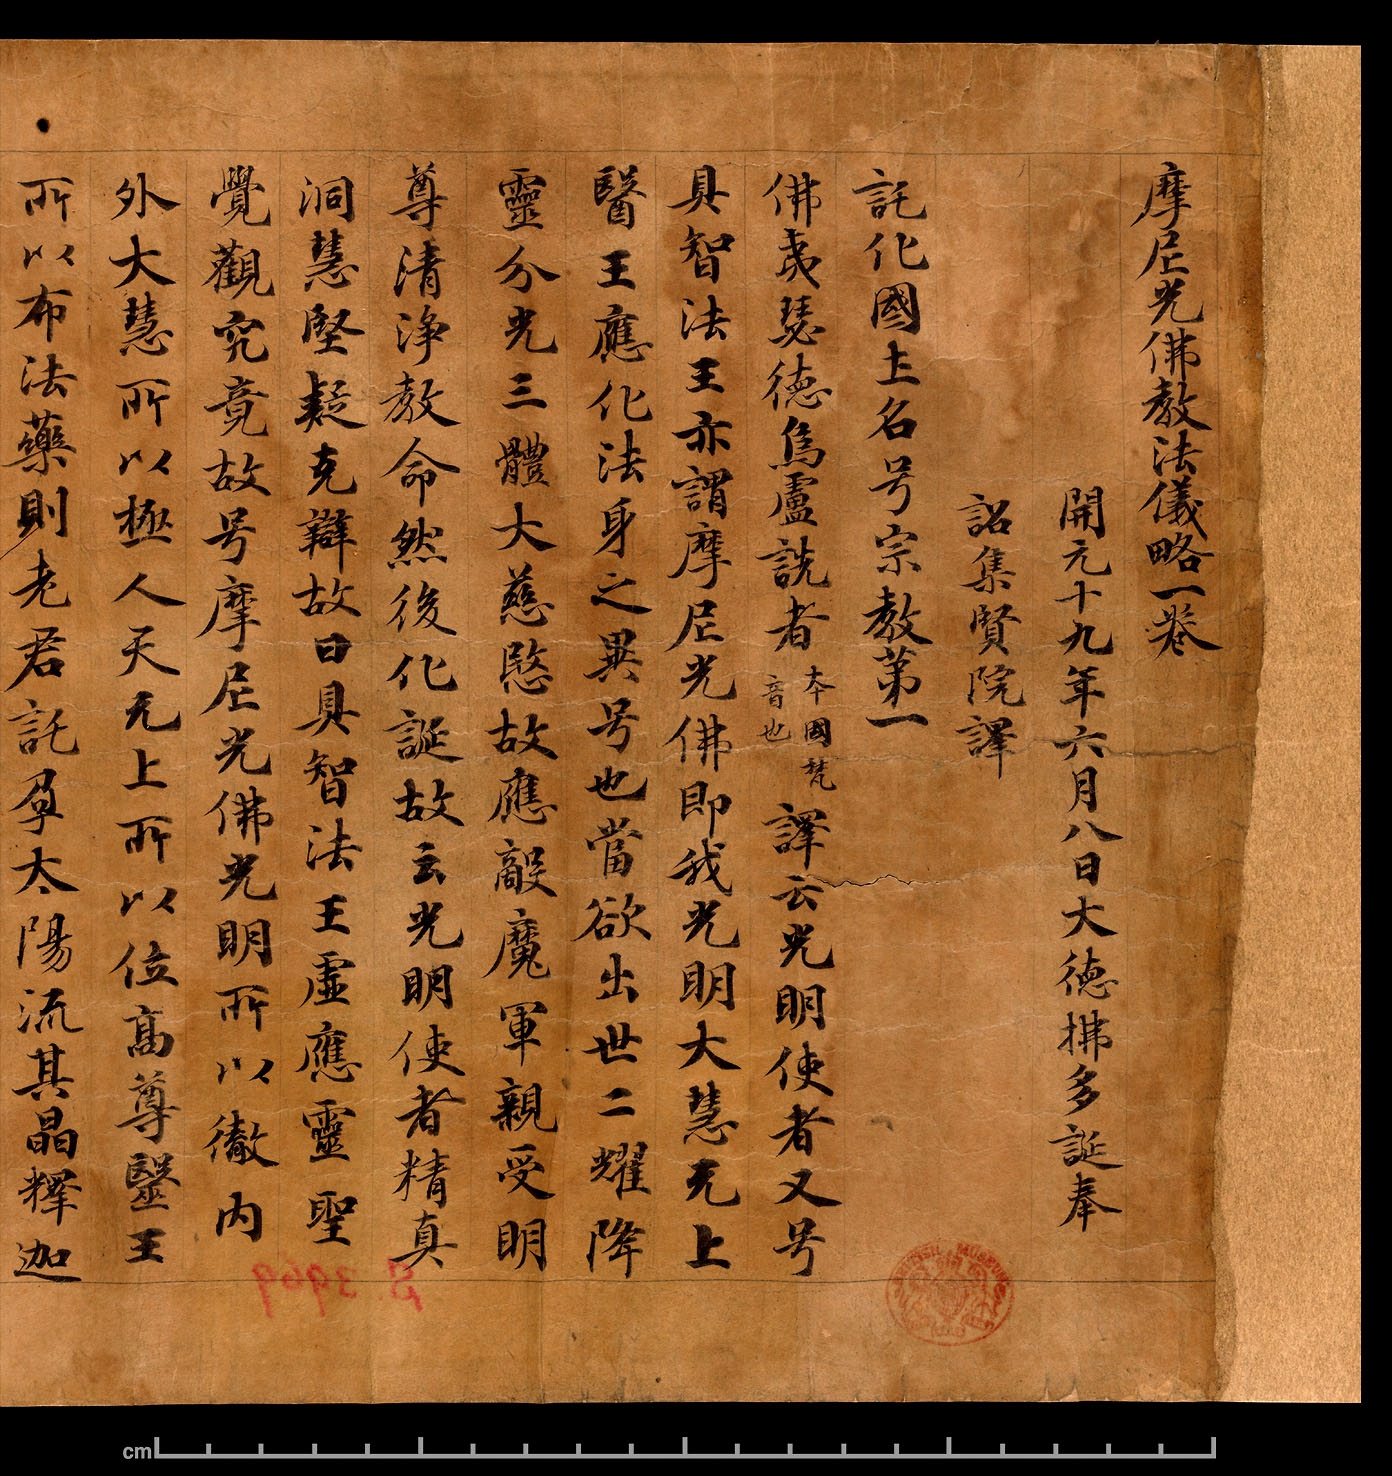 摩尼光佛教法儀略一卷
開元十九年六月八日大德拂多誕奉
詔集賢院譯
託化國土名号宗教第一
佛夷瑟德烏盧詵者本國梵音也譯云光明使者又号
具智法王亦謂摩尼光佛即我光明大慧无上
醫王應化法身之異号也當欲出世二耀降
靈分光三體大慈愍故應敵魔軍親受明
尊清淨教命然後化誕故云光明使者精真
洞慧堅疑克辯故曰具智法王虛應靈聖
覺觀究竟故号摩尼光佛光明所以徹內
外大慧所以極人天无上所以位高尊毉王
所以布法藥則老君託孕太陽流其晶釋迦
S. 3969
BRITISH MUSEUM
cm